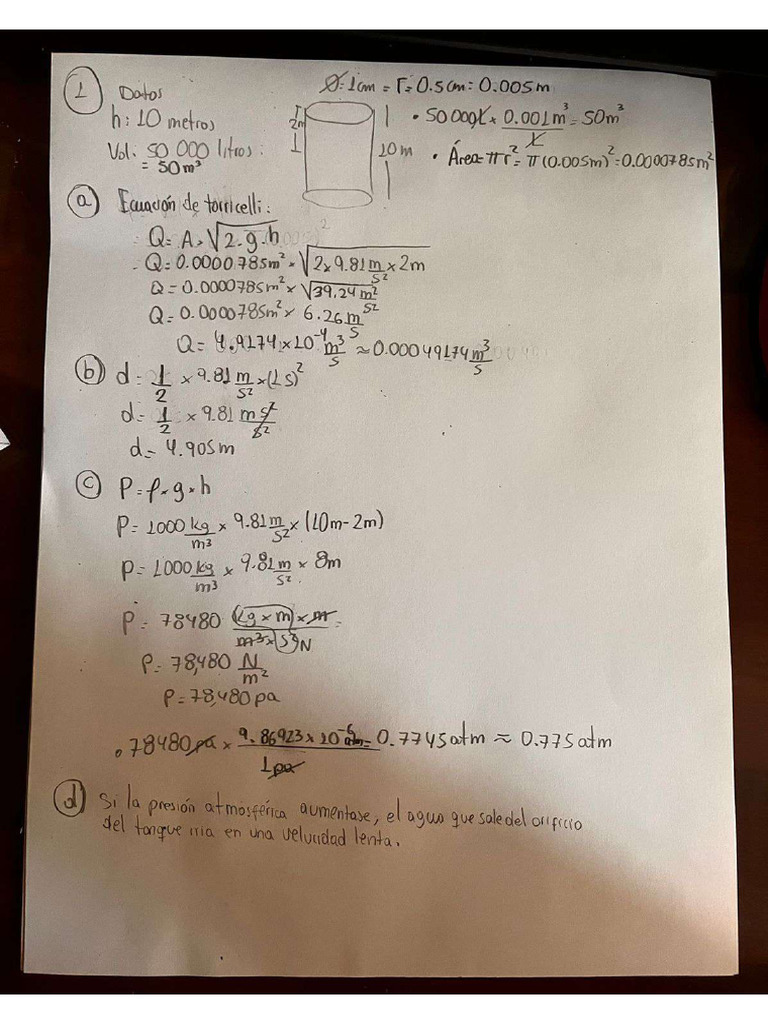 ① Datos
Ø=1cm = r=0.5cm=0.005m
h: 10 metros
Vol. 50 000 litros:
= 50m³
2m
10m
• 50 000L × 0.001m³/L = 50m³
• Área=πr²=π(0.005m)²=0.0000785m²
ⓐ Ecuación de torricelli:
Q= A×√2·g·h
Q=0.0000785m²×√2×9.81m/s²×2m
Q=0.0000785m²×√39.24m²/s²
Q=0.0000785m²×6.26m/s
Q=4.9174×10⁻⁴m³/s≈0.00049174m³/s
ⓑ d=1/2×9.81m/s²×(1s)²
d=1/2×9.81ms²/s²
d=4.905m
ⓒ P=ρ×g×h
P=1000kg/m³×9.81m/s²×(10m-2m)
P=1000kg/m³×9.81m/s²×8m
P=78480 (kg×m)×m/m³×s² N =
P=78,480 N/m²
P=78,480pa
• 78480pa×9.86923×10⁻⁶atm/1pa=0.7745atm≈0.775atm
ⓓ Si la presión atmosférica aumentase, el agua que sale del orificio
del tanque iria en una velocidad lenta.